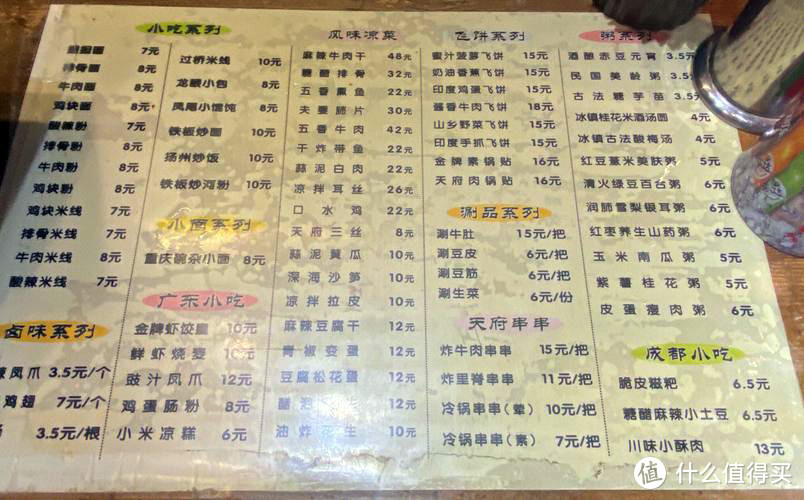 小吃系列
7元
排骨面 8元
牛肉面 8元
鸡块面 8元
酸辣粉 7元
排骨粉 8元
牛肉粉 8元
鸡块粉 8元
鸡块米线 8元
排骨米线 8元
牛肉米线 8元
酸辣米线 7元
卤味系列
凤爪 3.5元/个
鸡翅 7元/个
3.5元/根
过桥米线 10元
龙眼小包 8元
凤尾小馄饨 8元
铁板炒面 10元
扬州炒饭 10元
铁板炒河粉 10元
小面系列
重庆碗杂小面 8元
广东小吃
金牌虾饺皇 10元
鲜虾烧麦 10元
豉汁凤爪 12元
鸡蛋肠粉 8元
小米凉糕 6元
风味凉菜
麻辣牛肉干 48元
糖醋排骨 32元
五香熏鱼 22元
夫妻肺片 30元
五香牛肉 42元
干炸带鱼 22元
蒜泥白肉 22元
凉拌耳丝 26元
口水鸡 22元
天府三丝 8元
蒜泥黄瓜 10元
深海沙笋 10元
凉拌拉皮 10元
麻辣豆腐干 12元
青椒变蛋 12元
豆腐松花蛋 12元
醋泡 12元
油炸花生 10元
飞饼系列
蜜汁菠萝飞饼 15元
奶油香蕉飞饼 15元
印度鸡蛋飞饼 15元
酱香牛肉飞饼 18元
山乡野菜飞饼 15元
印度手抓飞饼 15元
金牌素锅贴 16元
天府肉锅贴 16元
涮品系列
涮牛肚 15元/把
涮豆皮 6元/把
涮豆筋 6元/把
涮生菜 6元/份
天府串串
炸牛肉串串 15元/把
炸里脊串串 11元/把
冷锅串串(荤) 10元/把
冷锅串串(素) 7元/把
粥系列
酒酿赤豆元宵 3.5元
民国美龄粥 3.5元
古法糖芋苗 3.5元
冰镇桂花米酒汤圆 4元
冰镇古法酸梅汤 4元
红豆薏米美肤粥 5元
清火绿豆百合粥 6元
润肺雪梨银耳粥 6元
红枣养生山药粥 6元
玉米南瓜粥 5元
紫薯桂花粥 5元
皮蛋瘦肉粥 6元
成都小吃
脆皮糍粑 6.5元
糖醋麻辣小土豆 6.5元
川味小酥肉 13元
值 什么值得买